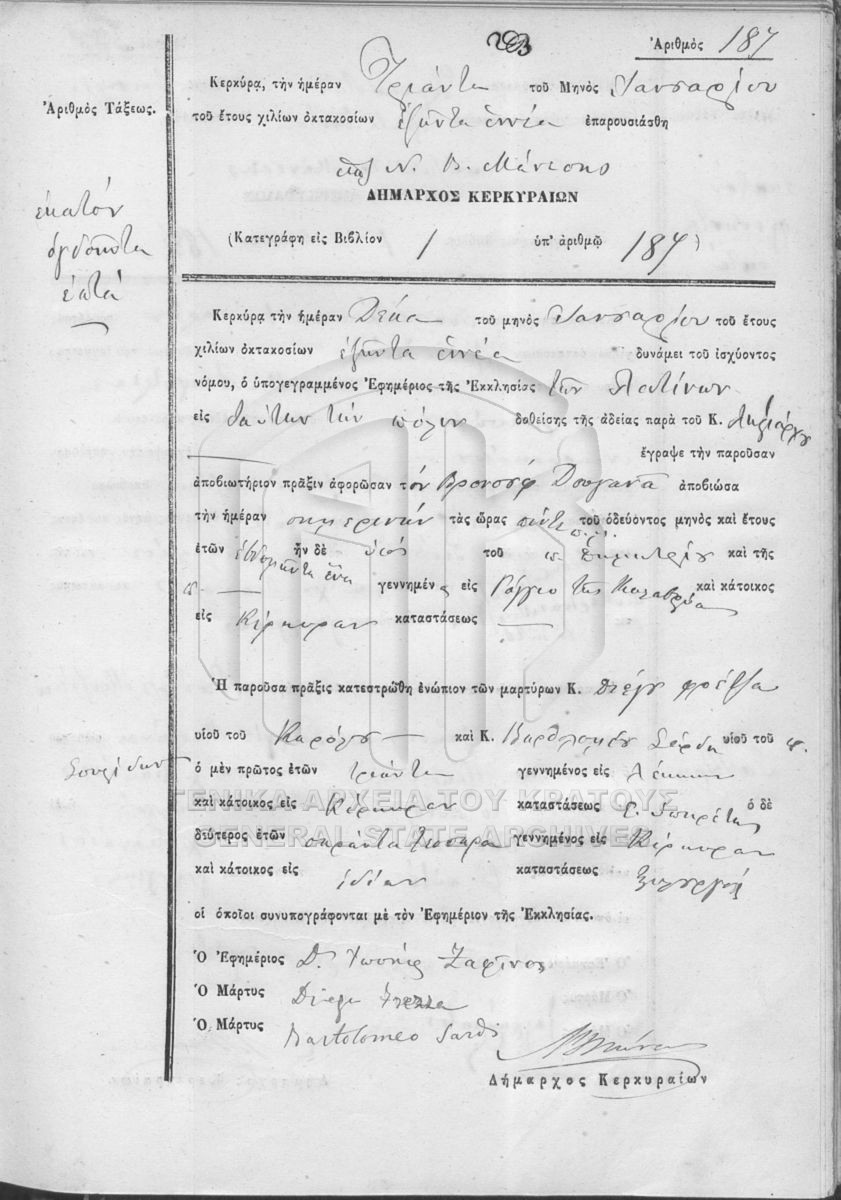 Ἀριθμὸς 187
Κερκύρα, τὴν ἡμέραν Τριάντα τοῦ Μηνὸς Ἰανουαρίου
Ἀριθμὸς Τάξεως.
τοῦ ἔτους χιλίων ὀκτακοσίων ἑξῆντα ἐννέα ἐπαρουσιάσθη
Ν. Β. Μάνεσης
ΔΗΜΑΡΧΟΣ ΚΕΡΚΥΡΑΙΩΝ
ἑκατὸν
ὀγδοῆντα
ἑπτά
(Κατεγράφη εἰς Βιβλίον 1 ὑπ' ἀριθμῷ 187)
Κερκύρᾳ τὴν ἡμέραν Δέκα τοῦ μηνὸς Ἰανουαρίου τοῦ ἔτους
χιλίων ὀκτακοσίων ἑξῆντα ἐννέα δυνάμει τοῦ ἰσχύοντος
νόμου, ὁ ὑπογεγραμμένος Ἐφημέριος τῆς Ἐκκλησίας τῶν Λατίνων
εἰς ταύτην τὴν πόλιν δοθείσης τῆς ἀδείας παρὰ τοῦ Κ. Ληξιάρχου
ἔγραψε τὴν παροῦσαν
ἀποβιωτήριον πρᾶξιν ἀφορῶσαν τὸν ἀποβιώσα
τὴν ἡμέραν σημερινὴν τὰς ὥρας πέντε π.μ. τοῦ ὁδεύοντος μηνὸς καὶ ἔτους
ἐτῶν ἑβδομῆντα ἕνα ἦν δὲ υἱὸς τοῦ π Δημητρίου καὶ τῆς
γεννημέν ος εἰς Ρόγγιο τῆς Καλαβρίας καὶ κάτοικος
εἰς Κέρκυραν καταστάσεως
Ἡ παροῦσα πρᾶξις κατεστρώθη ἐνώπιον τῶν μαρτύρων Κ. Διέγο Φρέτζα
υἱοῦ τοῦ Καρόλου καὶ Κ. Βαρθολομέου Σάρδη υἱοῦ τοῦ
ὁ μὲν πρῶτος ἐτῶν τριάντα γεννημένος εἰς
ΓΕΝΙΚΑ ΑΡΧΕΙΑ ΤΟΥ ΚΡΑΤΟΥΣ
καὶ κάτοικος εἰς Κέρκυραν καταστάσεως ὑπηρέτης ὁ δὲ
GENERAL STATE ARCHIVES
δεύτερος ἐτῶν σαράντα τέσσαρα γεννημένος εἰς Κέρκυραν
καὶ κάτοικος εἰς ἰδίαν καταστάσεως ξυλουργός
οἱ ὁποῖοι συνυπογράφονται μὲ τὸν Ἐφημέριον τῆς Ἐκκλησίας.
Ὁ Ἐφημέριος Δ. Ἰωσὴφ Ζαφῖνος
Ὁ Μάρτυς Diego Frezza
Ὁ Μάρτυς Bartolomeo Sardi
Δήμαρχος Κερκυραίων